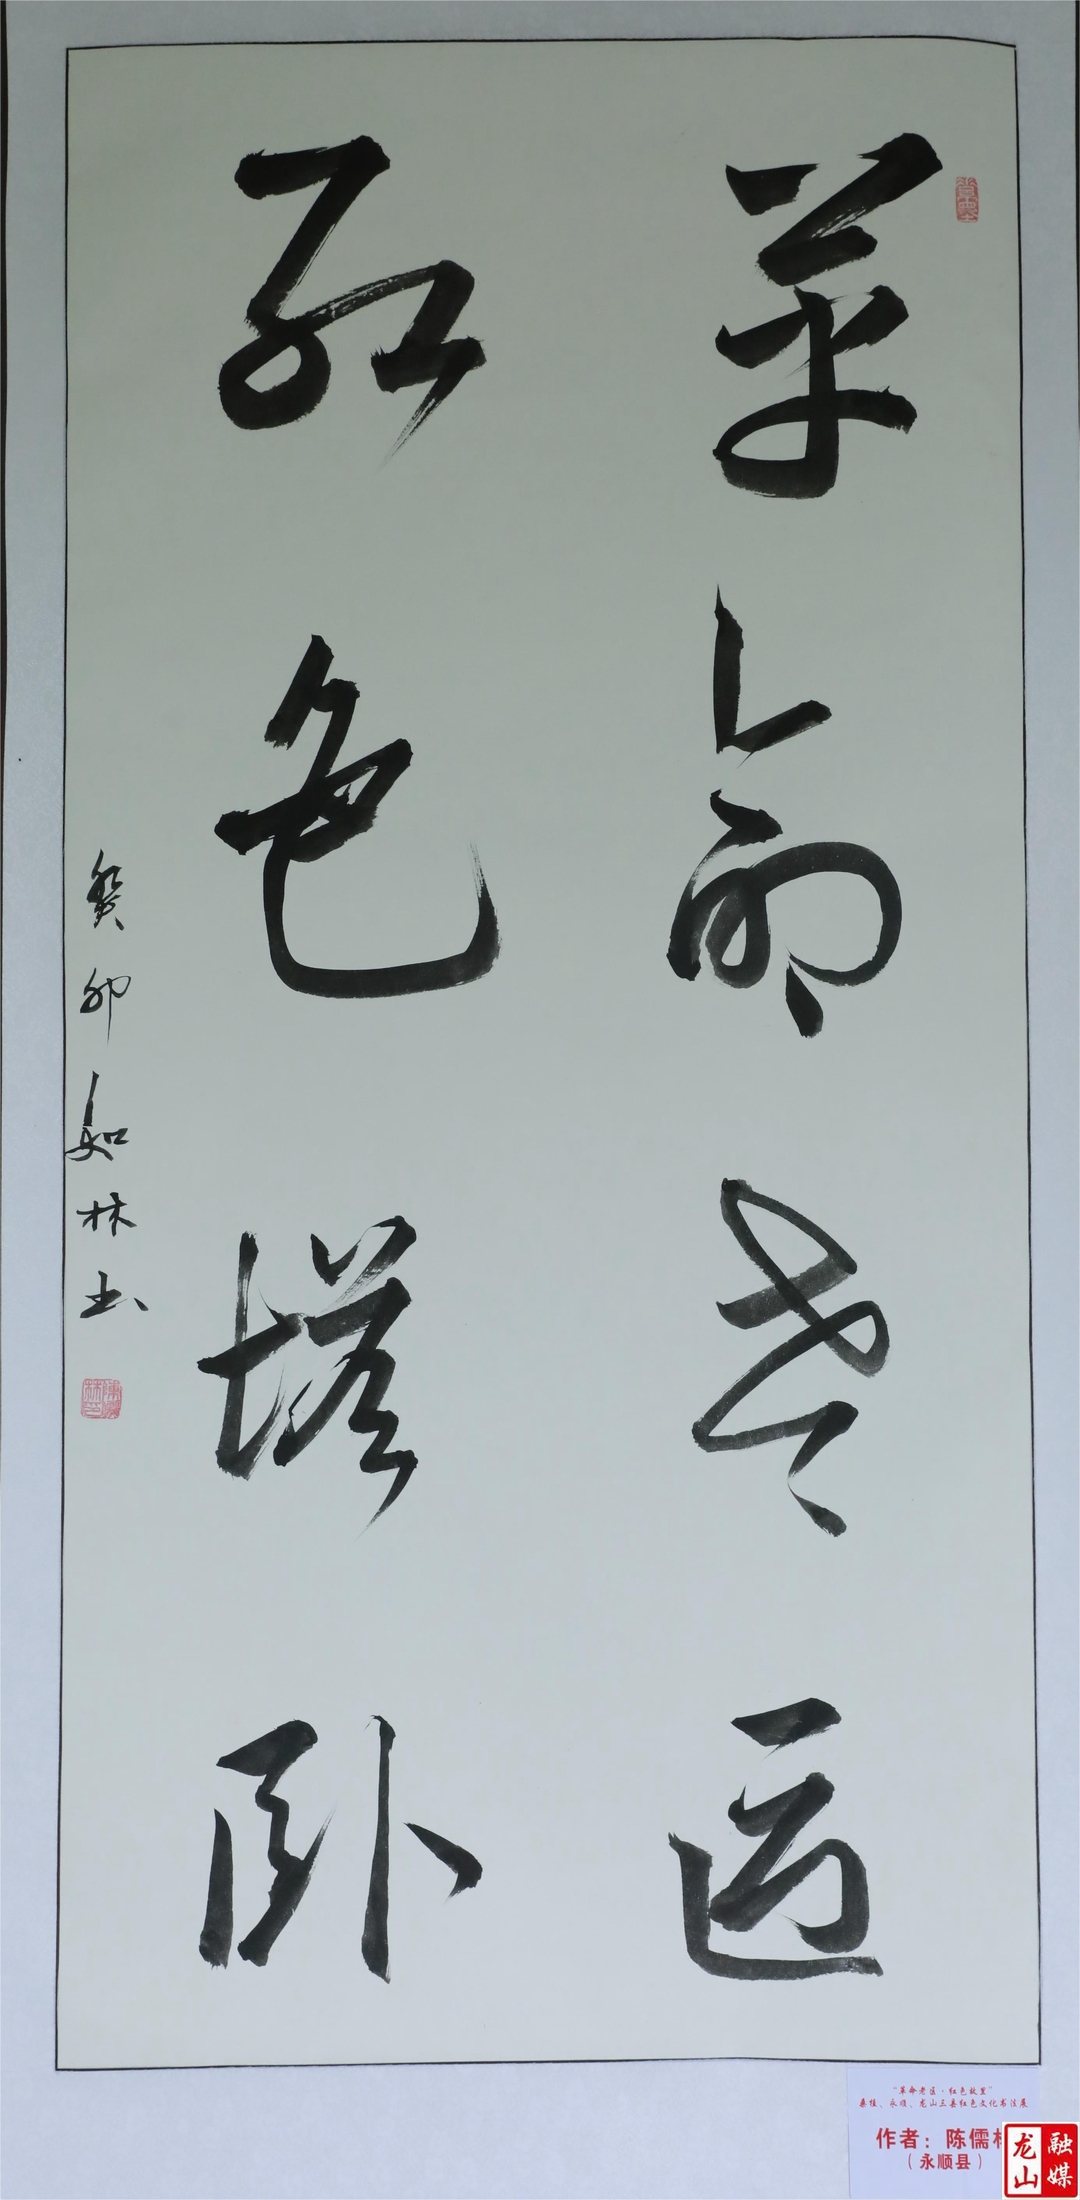 革命老区
红色塔卧
癸卯如林书
“革命老区·红色故里”
桑植、永顺、龙山三县红色文化书法展
作者：陈儒林
（永顺县）
龙山
融媒